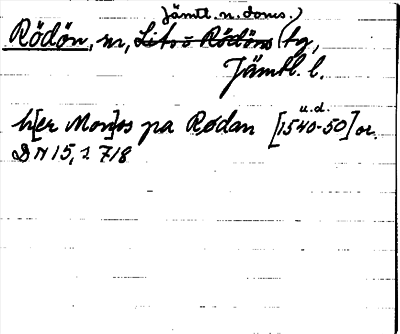 Jämtl. n. doms.)
Rödön, sn, Lits o Rödöns (tg,
Jämtl. l.
h[er Mon]os pa Rødan [1540-50] or.
u.d.
DN 15, s. 718